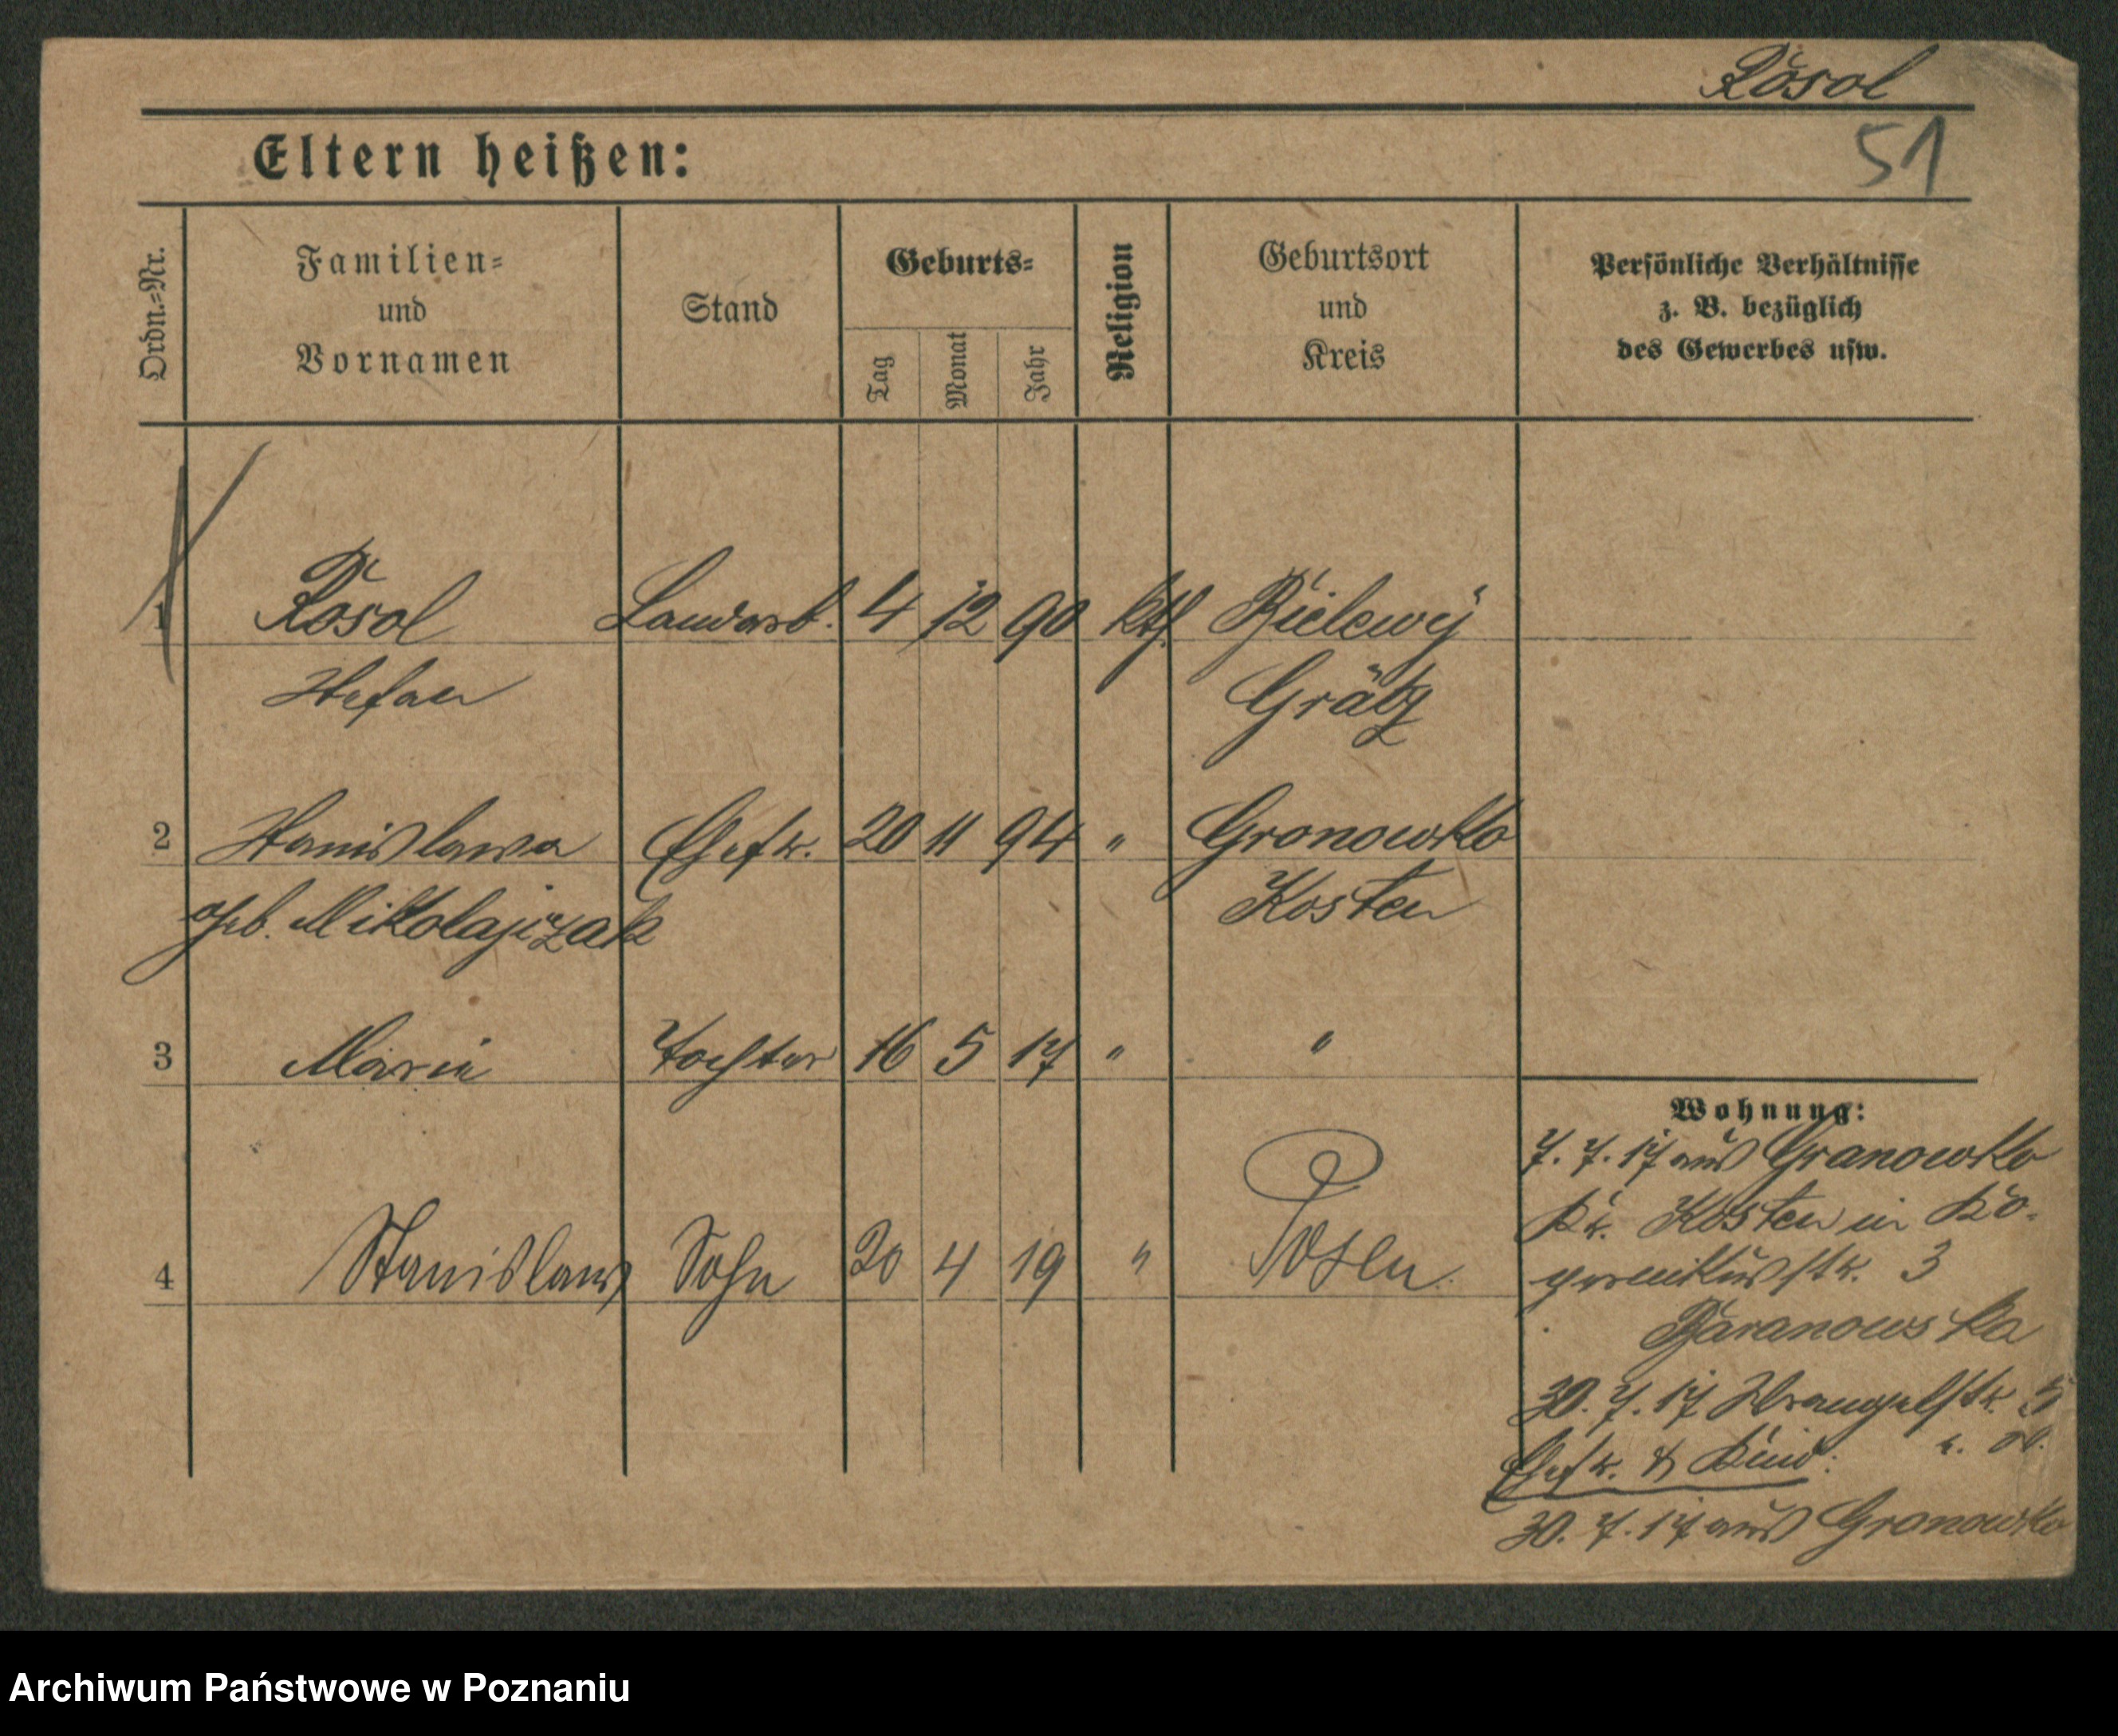 Rosol
51
Eltern heißen:
Ordn.-Nr.
Familien-
und
Vornamen
Stand
Geburts-
Tag
Monat
Jahr
Religion
Geburtsort
und
Kreis
Persönliche Verhältnisse
z. B. bezüglich
des Gewerbes usw.
1 Rosol Landarb. 4 12 90 kth. Bielewy
Stefan Grätz
2 Stanislawa Ehefr. 20 11 94 " Gronowko
geb. Mikolajczak Kosten
3 Maria Tochter 16 5 17 " "
4 Stanislaus Sohn 20 4 19 " Posen
Wohnung:
7. 7. 17 aus Granowko
Kr. Kosten in Ko-
pernikusstr. 3
Baranowska
30. 7. 17 Wrangelstr. 5
Ehefr. & Kind:
30. 7. 17 aus Gronowko
Archiwum Państwowe w Poznaniu